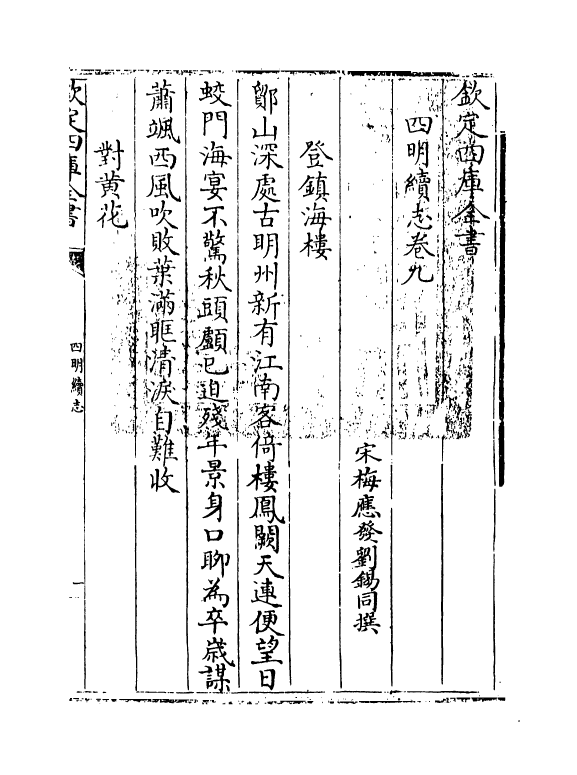 欽定四庫全書
四明續志卷九
宋梅應發劉錫同撰
登鎮海樓
鄮山深處古明州新有江南客倚樓鳳闕天連便望日
蛟門海宴不驚秋頭顱已迫殘年景身口聊為卒歲謀
蕭颯西風吹敗葉滿眶清淚自難收
對黄花
欽定四庫全書
四明續志
一